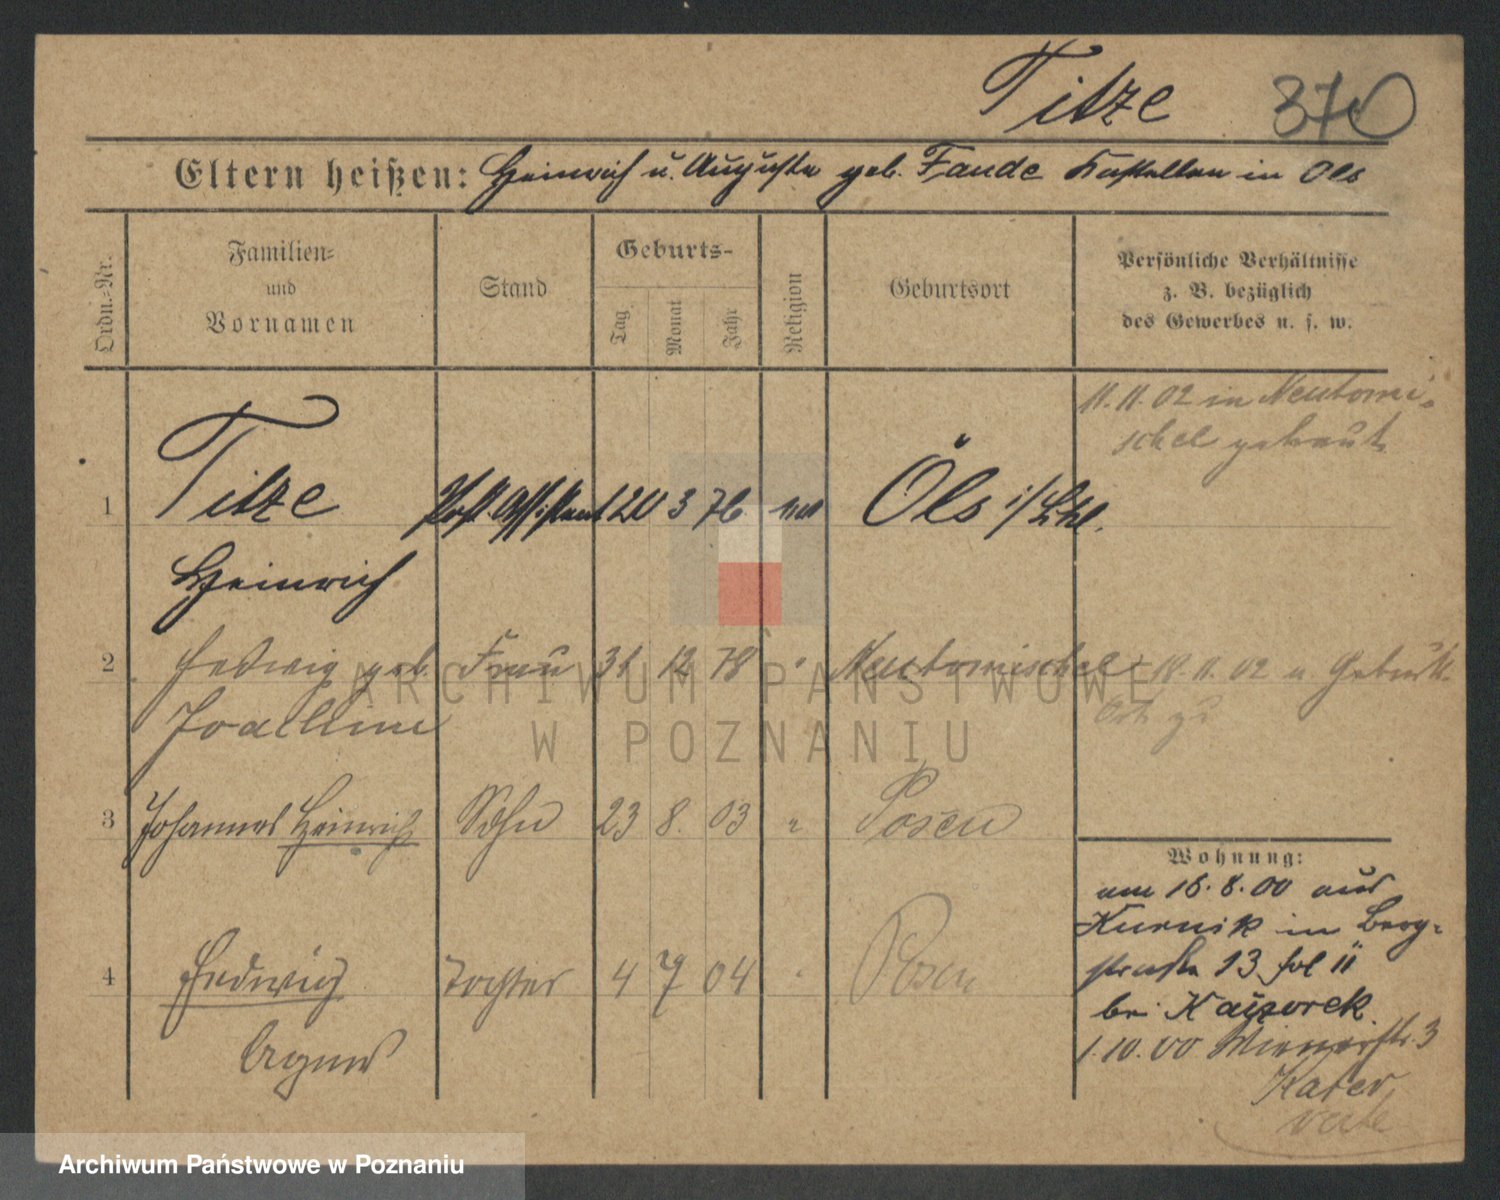 Titze 370
Eltern heißen: Heinrich u. Auguste geb. Fande Kastellan in Öls
Ordn.=Nr.
Familien=
und
Vornamen
Stand
Geburts-
Tag
Monat
Jahr
Religion
Geburtsort
Persönliche Verhältnisse
z. B. bezüglich
des Gewerbes u. s. w.
11.11.02 in Neutomi-
schel getraut
1 Titze Post Assistent 20 3 76 Öls i/Schl.
Heinrich
2 Hedwig geb. Frau 31 12 78 " Neutomischel 18.11.02 u.
Joachim
3 Johannes Heinrich Sohn 23 8. 03 " Posen
4 Hedwig Tochter 4 7 04 " Posen
Agnes
Wohnung:
am 18.8.00 aus
Kurnik in Berg-
straße 13 bei
bei Kaczorek.
1.10.00 Wienerstr. 3
Kater
verte
ARCHIWUM PAŃSTWOWE
W POZNANIU
Archiwum Państwowe w Poznaniu